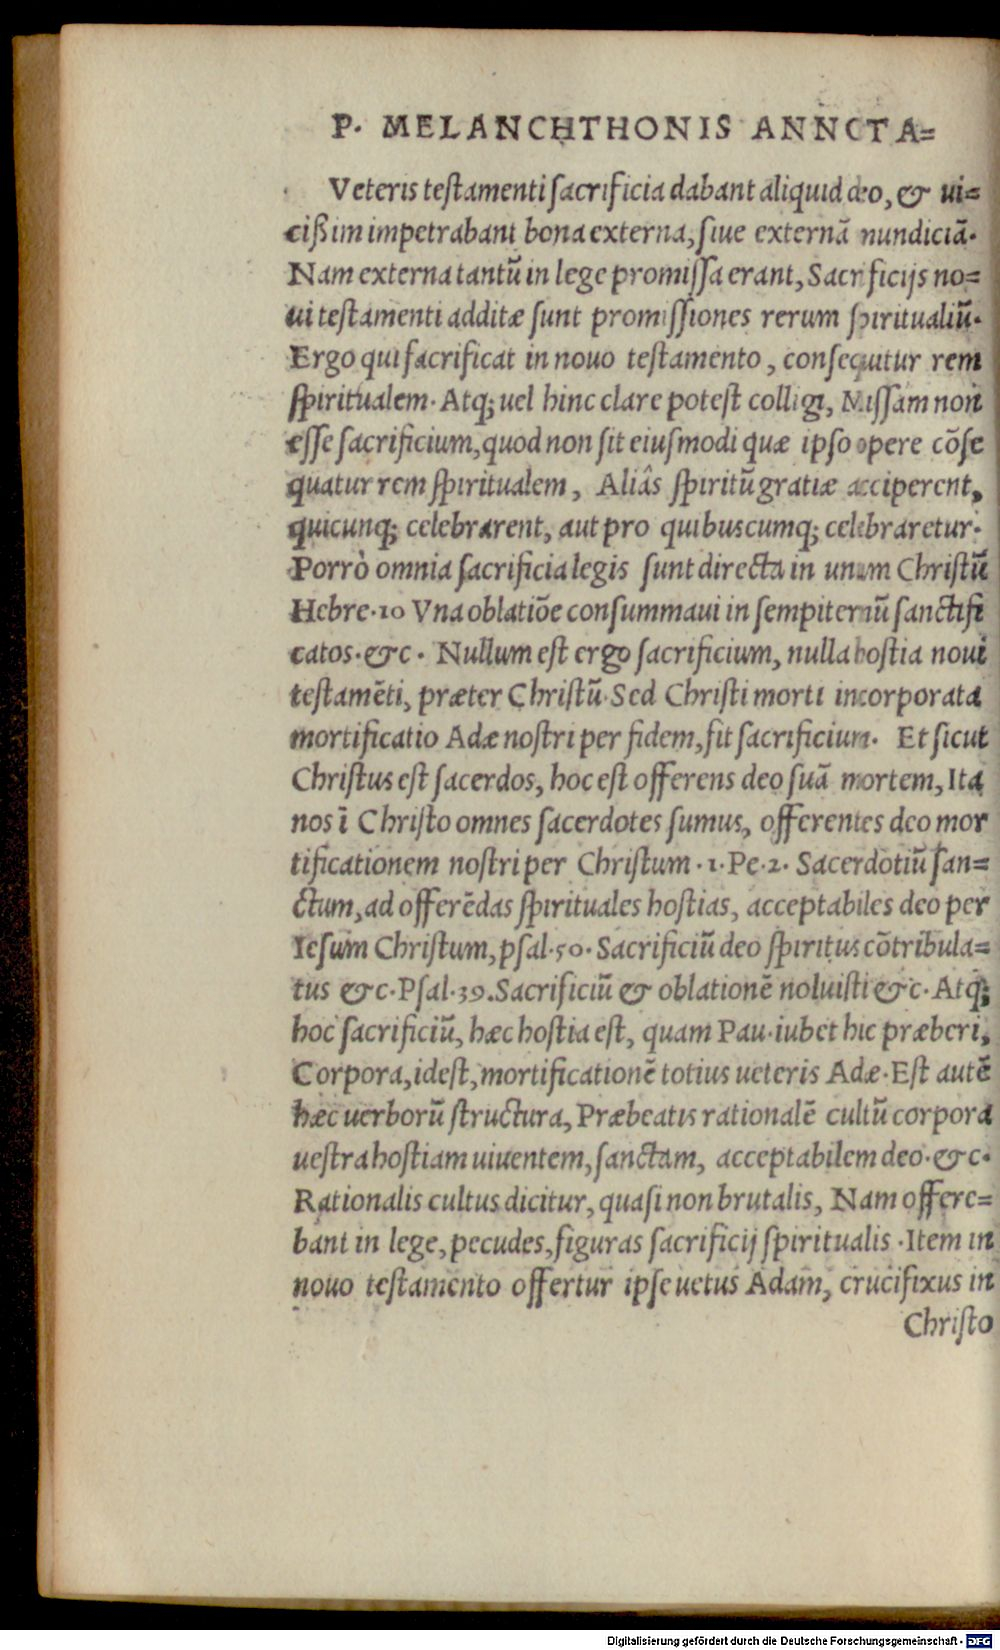 P. MELANCHTHONIS ANNOTA=
Veteris testamenti sacrificia dabant aliquid deo, & ui=
cißim impetrabant bona externa, siue externã nundiciã.
Nam externa tantũ in lege promissa erant, Sacrificijs no=
ui testamenti additæ sunt promissiones rerum spiritualiũ.
Ergo qui sacrificat in nouo testamento, consequitur rem
spiritualem. Atq; uel hinc clare potest colligi, Missam non
esse sacrificium, quod non sit eiusmodi quæ ipso opere cõse
quatur rem spiritualem, Aliâs spiritũ gratiæ acciperent,
quicunq; celebrarent, aut pro quibuscumq; celebraretur.
Porrò omnia sacrificia legis sunt directa in unum Christũ
Hebre. 10 Vna oblatiõe consummaui in sempiternũ sanctifi
catos. &c. Nullum est ergo sacrificium, nulla hostia noui
testamẽti, præter Christũ. Sed Christi morti incorporata
mortificatio Adæ nostri per fidem, fit sacrificium. Et sicut
Christus est sacerdos, hoc est offerens deo suã mortem, Ita
nos ĩ Christo omnes sacerdotes sumus, offerentes deo mor
tificationem nostri per Christum. 1. Pe. 2. Sacerdotiũ san=
ctum, ad offerẽdas spirituales hostias, acceptabiles deo per
Iesum Christum, psal. 50. Sacrificiũ deo spiritus cõtribula=
tus &c. Psal. 39. Sacrificiũ & oblationẽ noluisti &c. Atq;
hoc sacrificiũ, hæc hostia est, quam Pau. iubet hic præberi,
Corpora, idest, mortificationẽ totius ueteris Adæ. Est autẽ
hæc uerborũ structura, Præbeatis rationalẽ cultũ corpora
uestra hostiam uiuentem, sanctam, acceptabilem deo. &c.
Rationalis cultus dicitur, quasi non brutalis, Nam offere=
bant in lege, pecudes, figuras sacrificij spiritualis. Item in
nouo testamento offertur ipse uetus Adam, crucifixus in
Christo
Digitalisierung gefördert durch die Deutsche Forschungsgemeinschaft - DFG